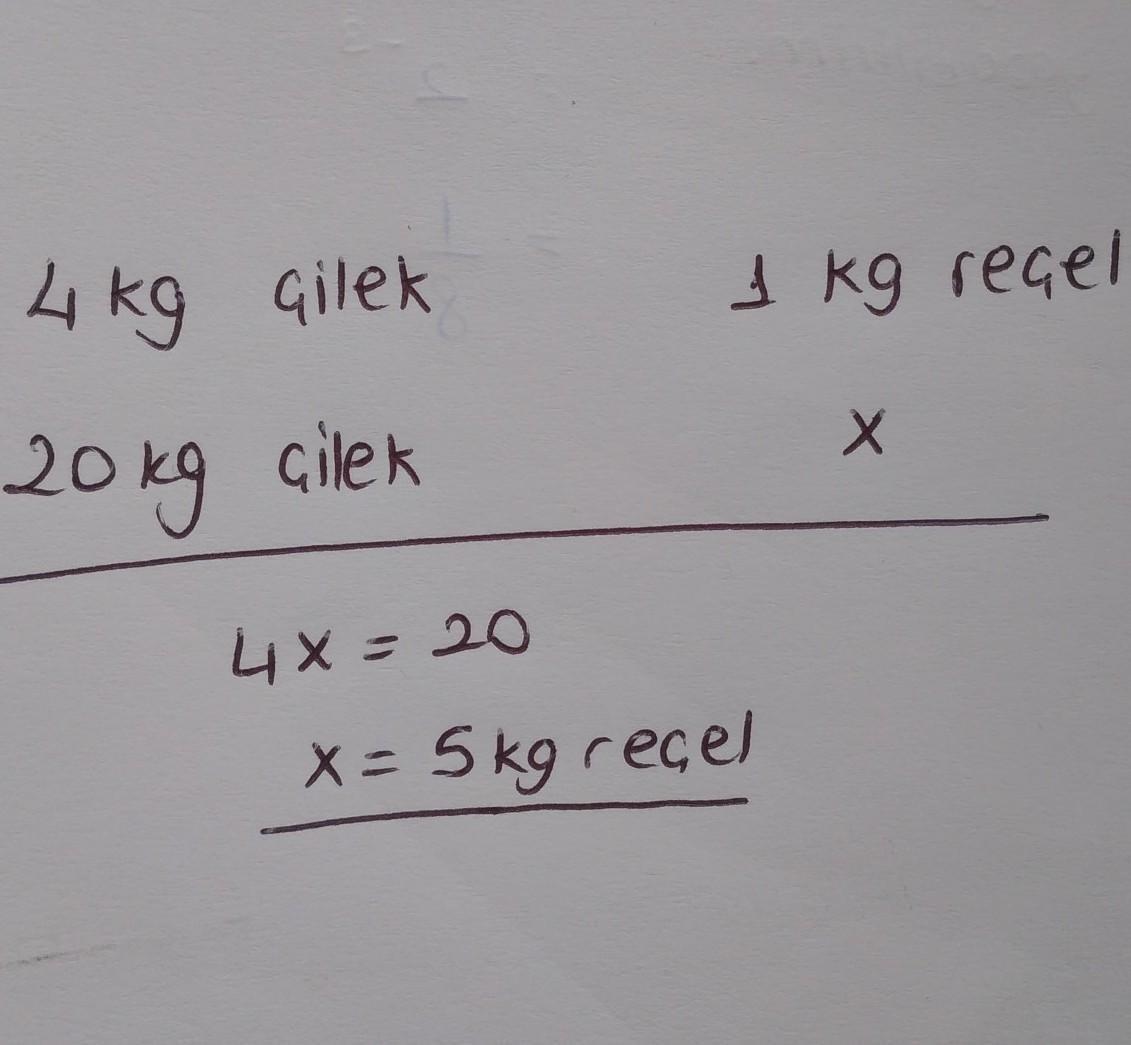 4 kg çilek 1 kg reçel
20 kg çilek x
4x = 20
x = 5 kg reçel